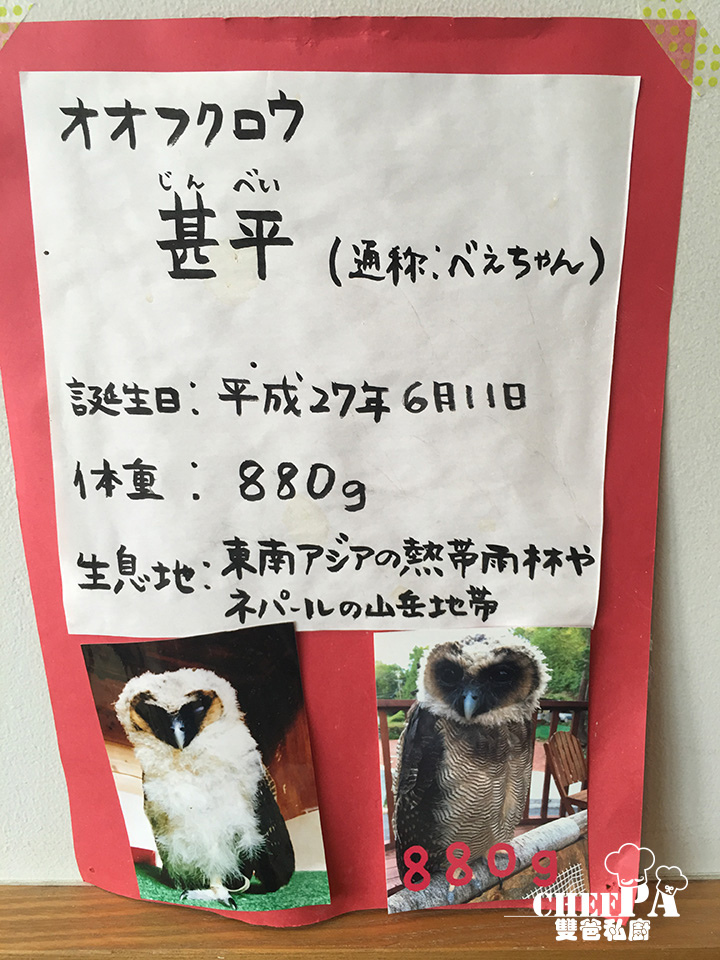 オオフクロウ
じん べい
甚平 (通称:べえちゃん)
誕生日: 平成27年6月11日
体重 : 880g
生息地: 東南アジアの熱帯雨林や
ネパールの山岳地帯
880g
CHEF PA
雙爸私廚